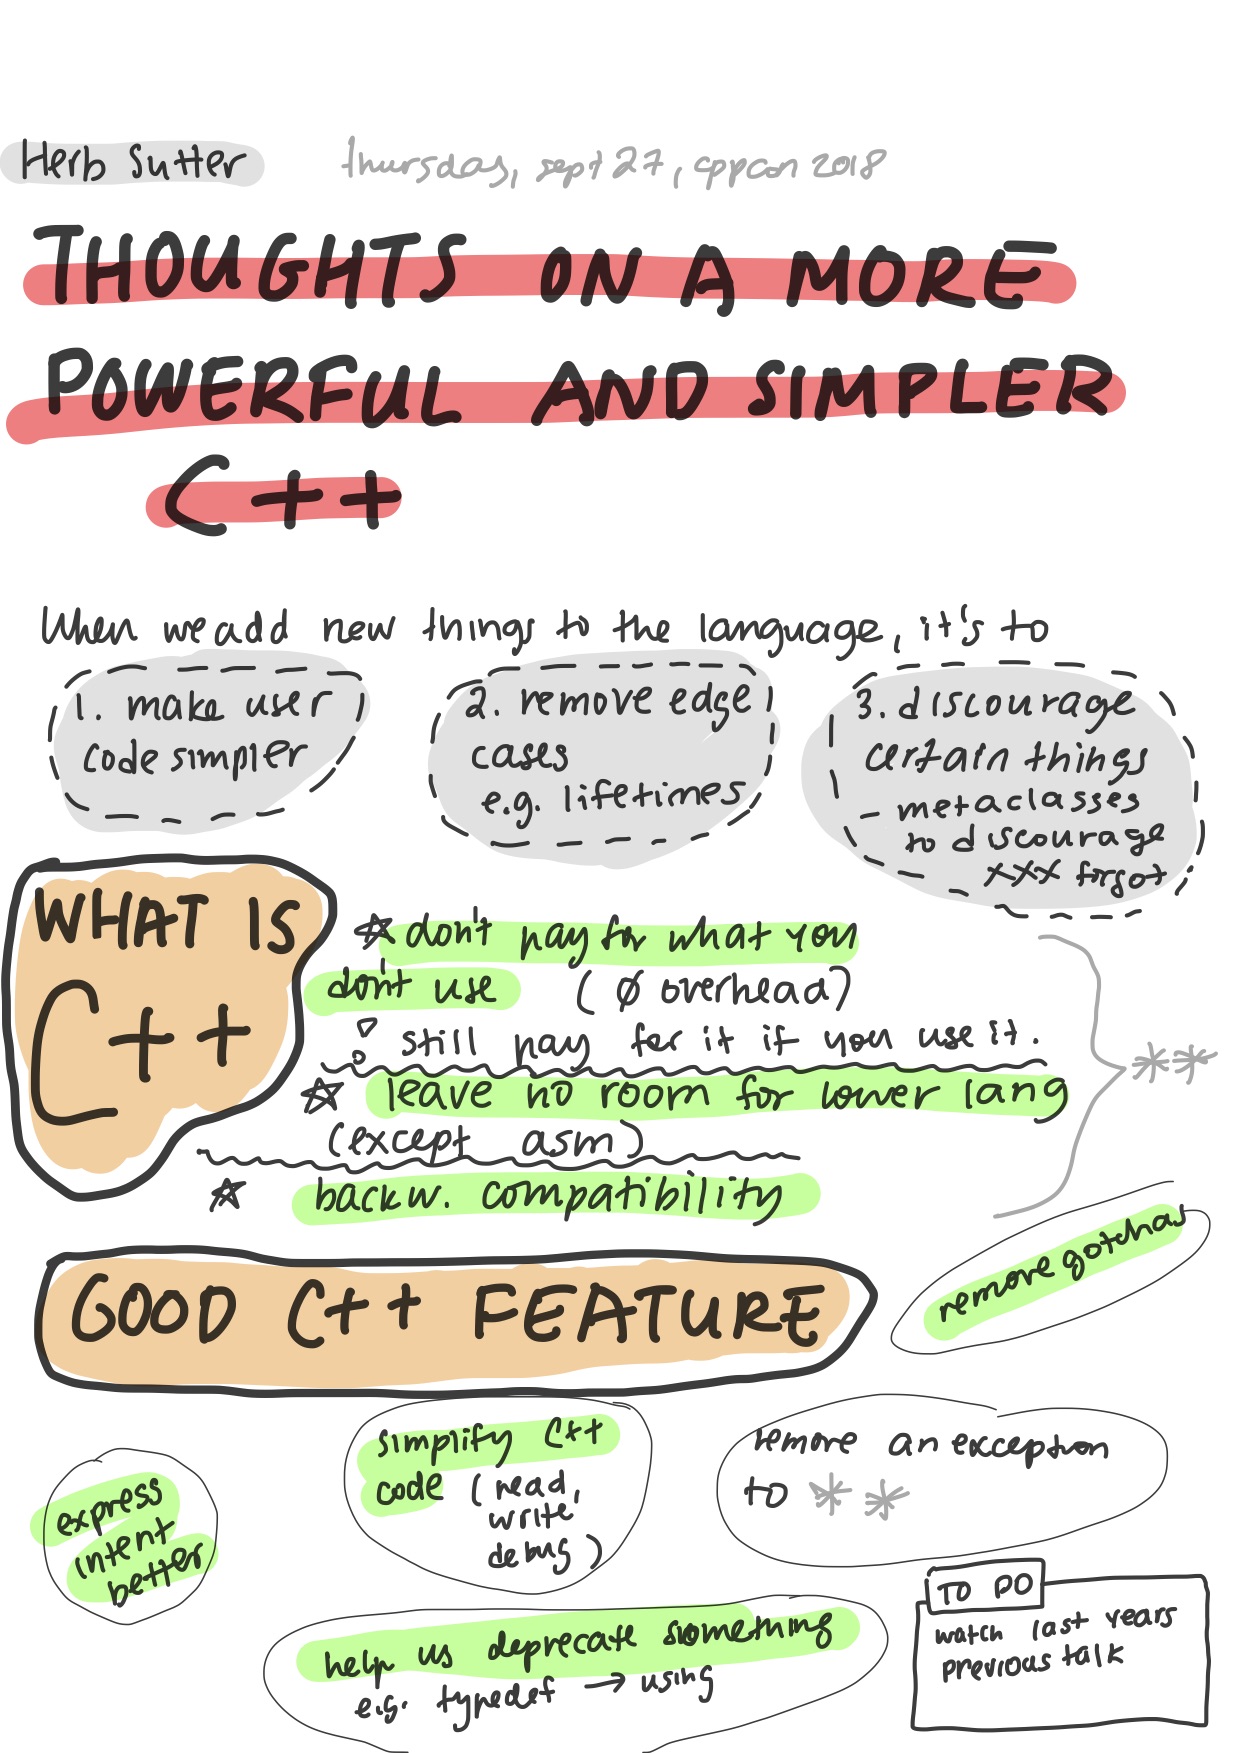 Herb Sutter
thursday, sept 27, cppcon 2018
THOUGHTS ON A MORE
POWERFUL AND SIMPLER
C++
When we add new things to the language, it's to
1. make user
code simpler
2. remove edge
cases
e.g. lifetimes
3. discourage
certain things
- metaclasses
to discourage
xxx forgot
WHAT IS
C++
☆ don't pay for what you
don't use (Ø overhead)
still pay for it if you use it.
☆ leave no room for lower lang
(except asm)
☆ backw. compatibility
**
GOOD C++ FEATURE
remove gotchas
express
intent
better
simplify C++
code (read,
write
debug)
remove an exception
to **
help us deprecate something
e.g. typedef → using
TO DO
watch last years
previous talk